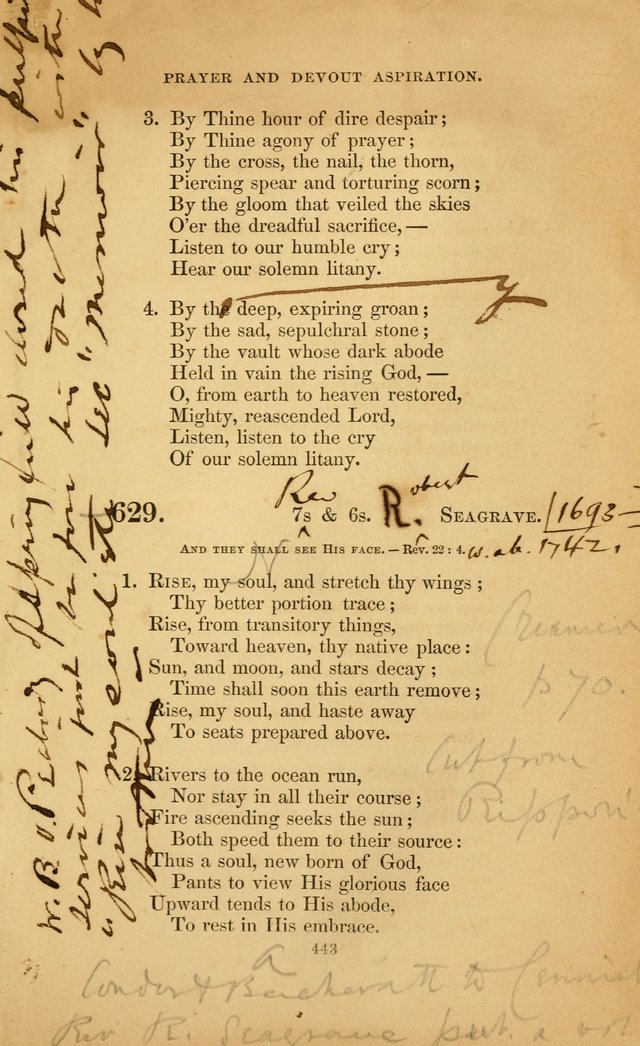 PRAYER AND DEVOUT ASPIRATION.
3. By Thine hour of dire despair;
By Thine agony of prayer;
By the cross, the nail, the thorn,
Piercing spear and torturing scorn;
By the gloom that veiled the skies
O'er the dreadful sacrifice,—
Listen to our humble cry;
Hear our solemn litany.
4. By the deep, expiring groan;
By the sad, sepulchral stone;
By the vault whose dark abode
Held in vain the rising God,—
O, from earth to heaven restored,
Mighty, reascended Lord,
Listen, listen to the cry
Of our solemn litany.
Rev Robert
629. 7s & 6s. R. SEAGRAVE. 1693—
AND THEY SHALL SEE HIS FACE.—Rev. 22:4. ab. 1742.
1. RISE, my soul, and stretch thy wings;
Thy better portion trace;
Rise, from transitory things,
Toward heaven, thy native place:
Sun, and moon, and stars decay;
Time shall soon this earth remove;
Rise, my soul, and haste away
To seats prepared above.
2. Rivers to the ocean run,
Nor stay in all their course;
Fire ascending seeks the sun;
Both speed them to their source:
Thus a soul, new born of God,
Pants to view His glorious face
Upward tends to His abode,
To rest in His embrace.
443
Creamer
p 70.
Cut from
Rippon
W. B. O. Peabody of Springfield closed his
services just before his with
"Rise my soul &c see "Memoir" by
Conder &
Rev R. Seagrave pub. a vol